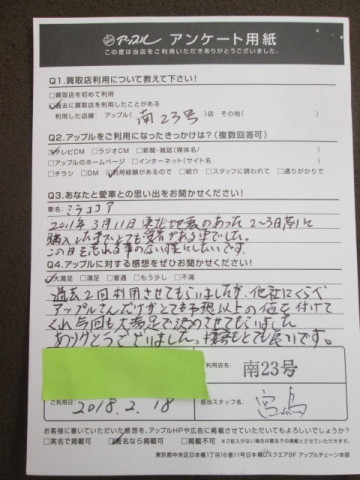 アップル アンケート用紙
この度は当店をご利用いただきありがとうございました。
Q1.買取店利用について教えて下さい！
□買取店を初めて利用
☑過去に買取店を利用したことがある
利用した店舗： アップル( 南23号 )店 その他( )
Q2.アップルをご利用になったきっかけは？(複数回答可)
☑テレビCM □ラジオCM □新聞・雑誌(媒体名/ )
□アップルのホームページ □インターネット(サイト名 )
□チラシ □DM ☑利用経験があるので □紹介 □スタッフに誘われて □通りがかりで
Q3.あなたと愛車との思い出をお聞かせください！
車名： ミラココア
2011年3月11日 東北地震のあった 2～3日前に
購入した車でとても愛着がある車でした。
この日を忘れる事のない様にしたいです
Q4.アップルに対する感想をぜひお聞かせください！
☑大満足 □満足 □普通 □もう少し □不満
過去2回利用させてもらいましたが、他社にくらべ
アップルさんだけがとても予想以上の値を付けて
くれ今回も大満足で決めさせてもらいました
ありがとうございました。接客もとても良いです。
ご利用店名： 南23号
ご利用日 2018.2.18
担当スタッフ名： 宮島
お客様に書いていただいた感想を、アップルHPや広告に掲載させていただいてもよろしいでしょうか？
□実名で掲載可 ☑匿名なら掲載可 □掲載不可 ※ご記入がない場合は匿名での掲載とさせていただきます。
東京都中央区日本橋1丁目16番11号日本橋DスクエアBF アップルチェーン本部